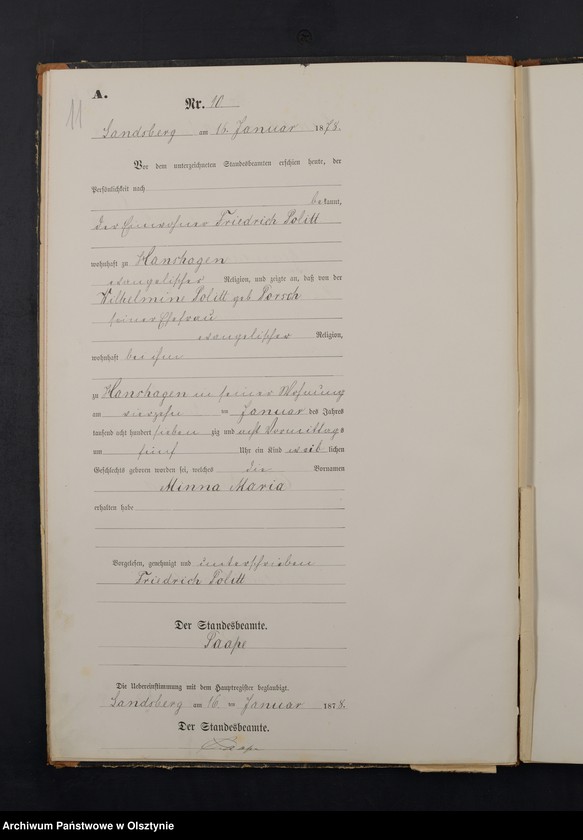 A.
11
Nr. 10
Landsberg am 16. Januar 1878.
Vor dem unterzeichneten Standesbeamten erschien heute, der
Persönlichkeit nach
bekannt,
der Einwohner Friedrich Politt
wohnhaft zu Hanshagen
evangelischer Religion, und zeigte an, daß von der
Wilhelmine Politt geb Porsch
seiner Ehefrau
evangelischer Religion,
wohnhaft bei ihm
zu Hanshagen in seiner Wohnung
am vierzehn ten Januar des Jahres
tausend acht hundert sieben zig und acht Vormittags
um fünf Uhr ein Kind weib lichen
Geschlechts geboren worden sei, welches die Vornamen
Minna Maria
erhalten habe
Vorgelesen, genehmigt und unterschrieben
Friedrich Politt
Der Standesbeamte.
Saape
Die Uebereinstimmung mit dem Hauptregister beglaubigt.
Landsberg am 16 ten Januar 1878.
Der Standesbeamte.
Saape
Archiwum Państwowe w Olsztynie